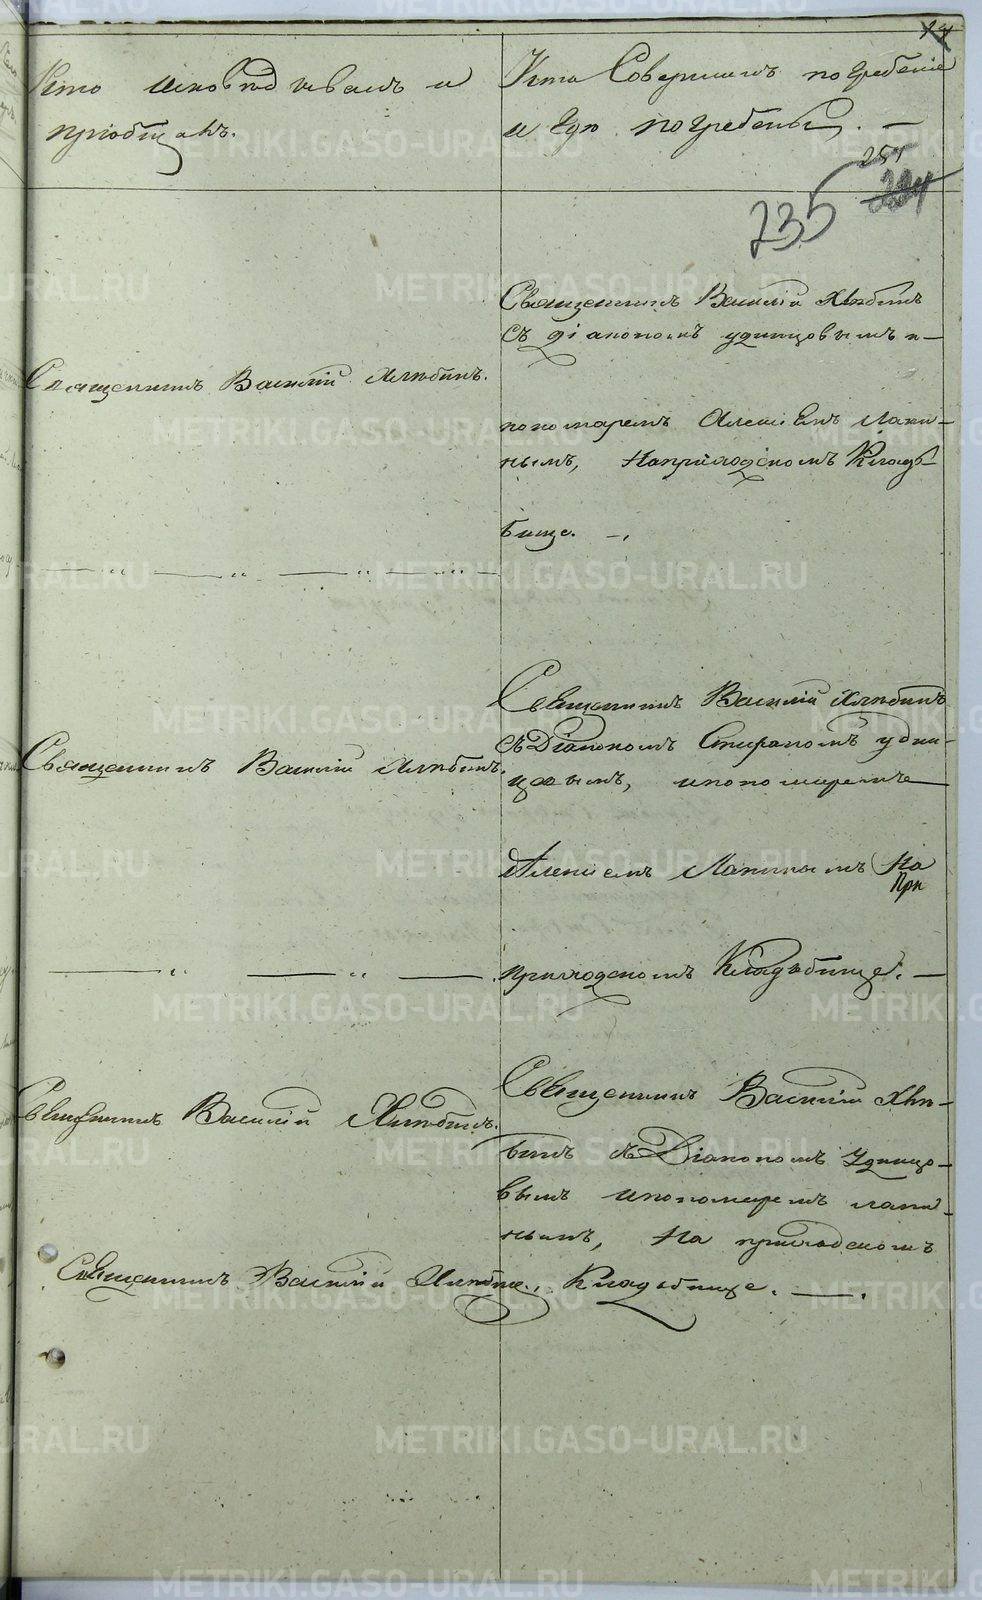 Кто исповѣдывалъ и
пріобщалъ.
Кто Совершилъ погребеніе
и гдѣ погребены. —
251
235
Священникъ Василій Хлѣбинъ.
Священникъ Василій Хлѣбинъ
Съ діакономъ удинцовымъ и
пономаремъ Алексіемъ Лапи-
нымъ, на приходскомъ Кладъ-
бище. —
Священникъ Василій Хлѣбинъ.
Священникъ Василій Хлѣбинъ
съ Діакономъ Стефаномъ удин-
цовымъ, и пономаремъ
Алексіемъ Лапинымъ На
При
приходскомъ Кладъбище. —
Священникъ Василій Хлѣбинъ.
Священникъ Василій Хлѣ-
бинъ съ Діакономъ Удинцо-
вымъ и пономаремъ лапи-
нымъ, На приходскомъ
Кладъбище. —
Священникъ Василій Хлѣбинъ.
METRIKI.GASO-URAL.RU